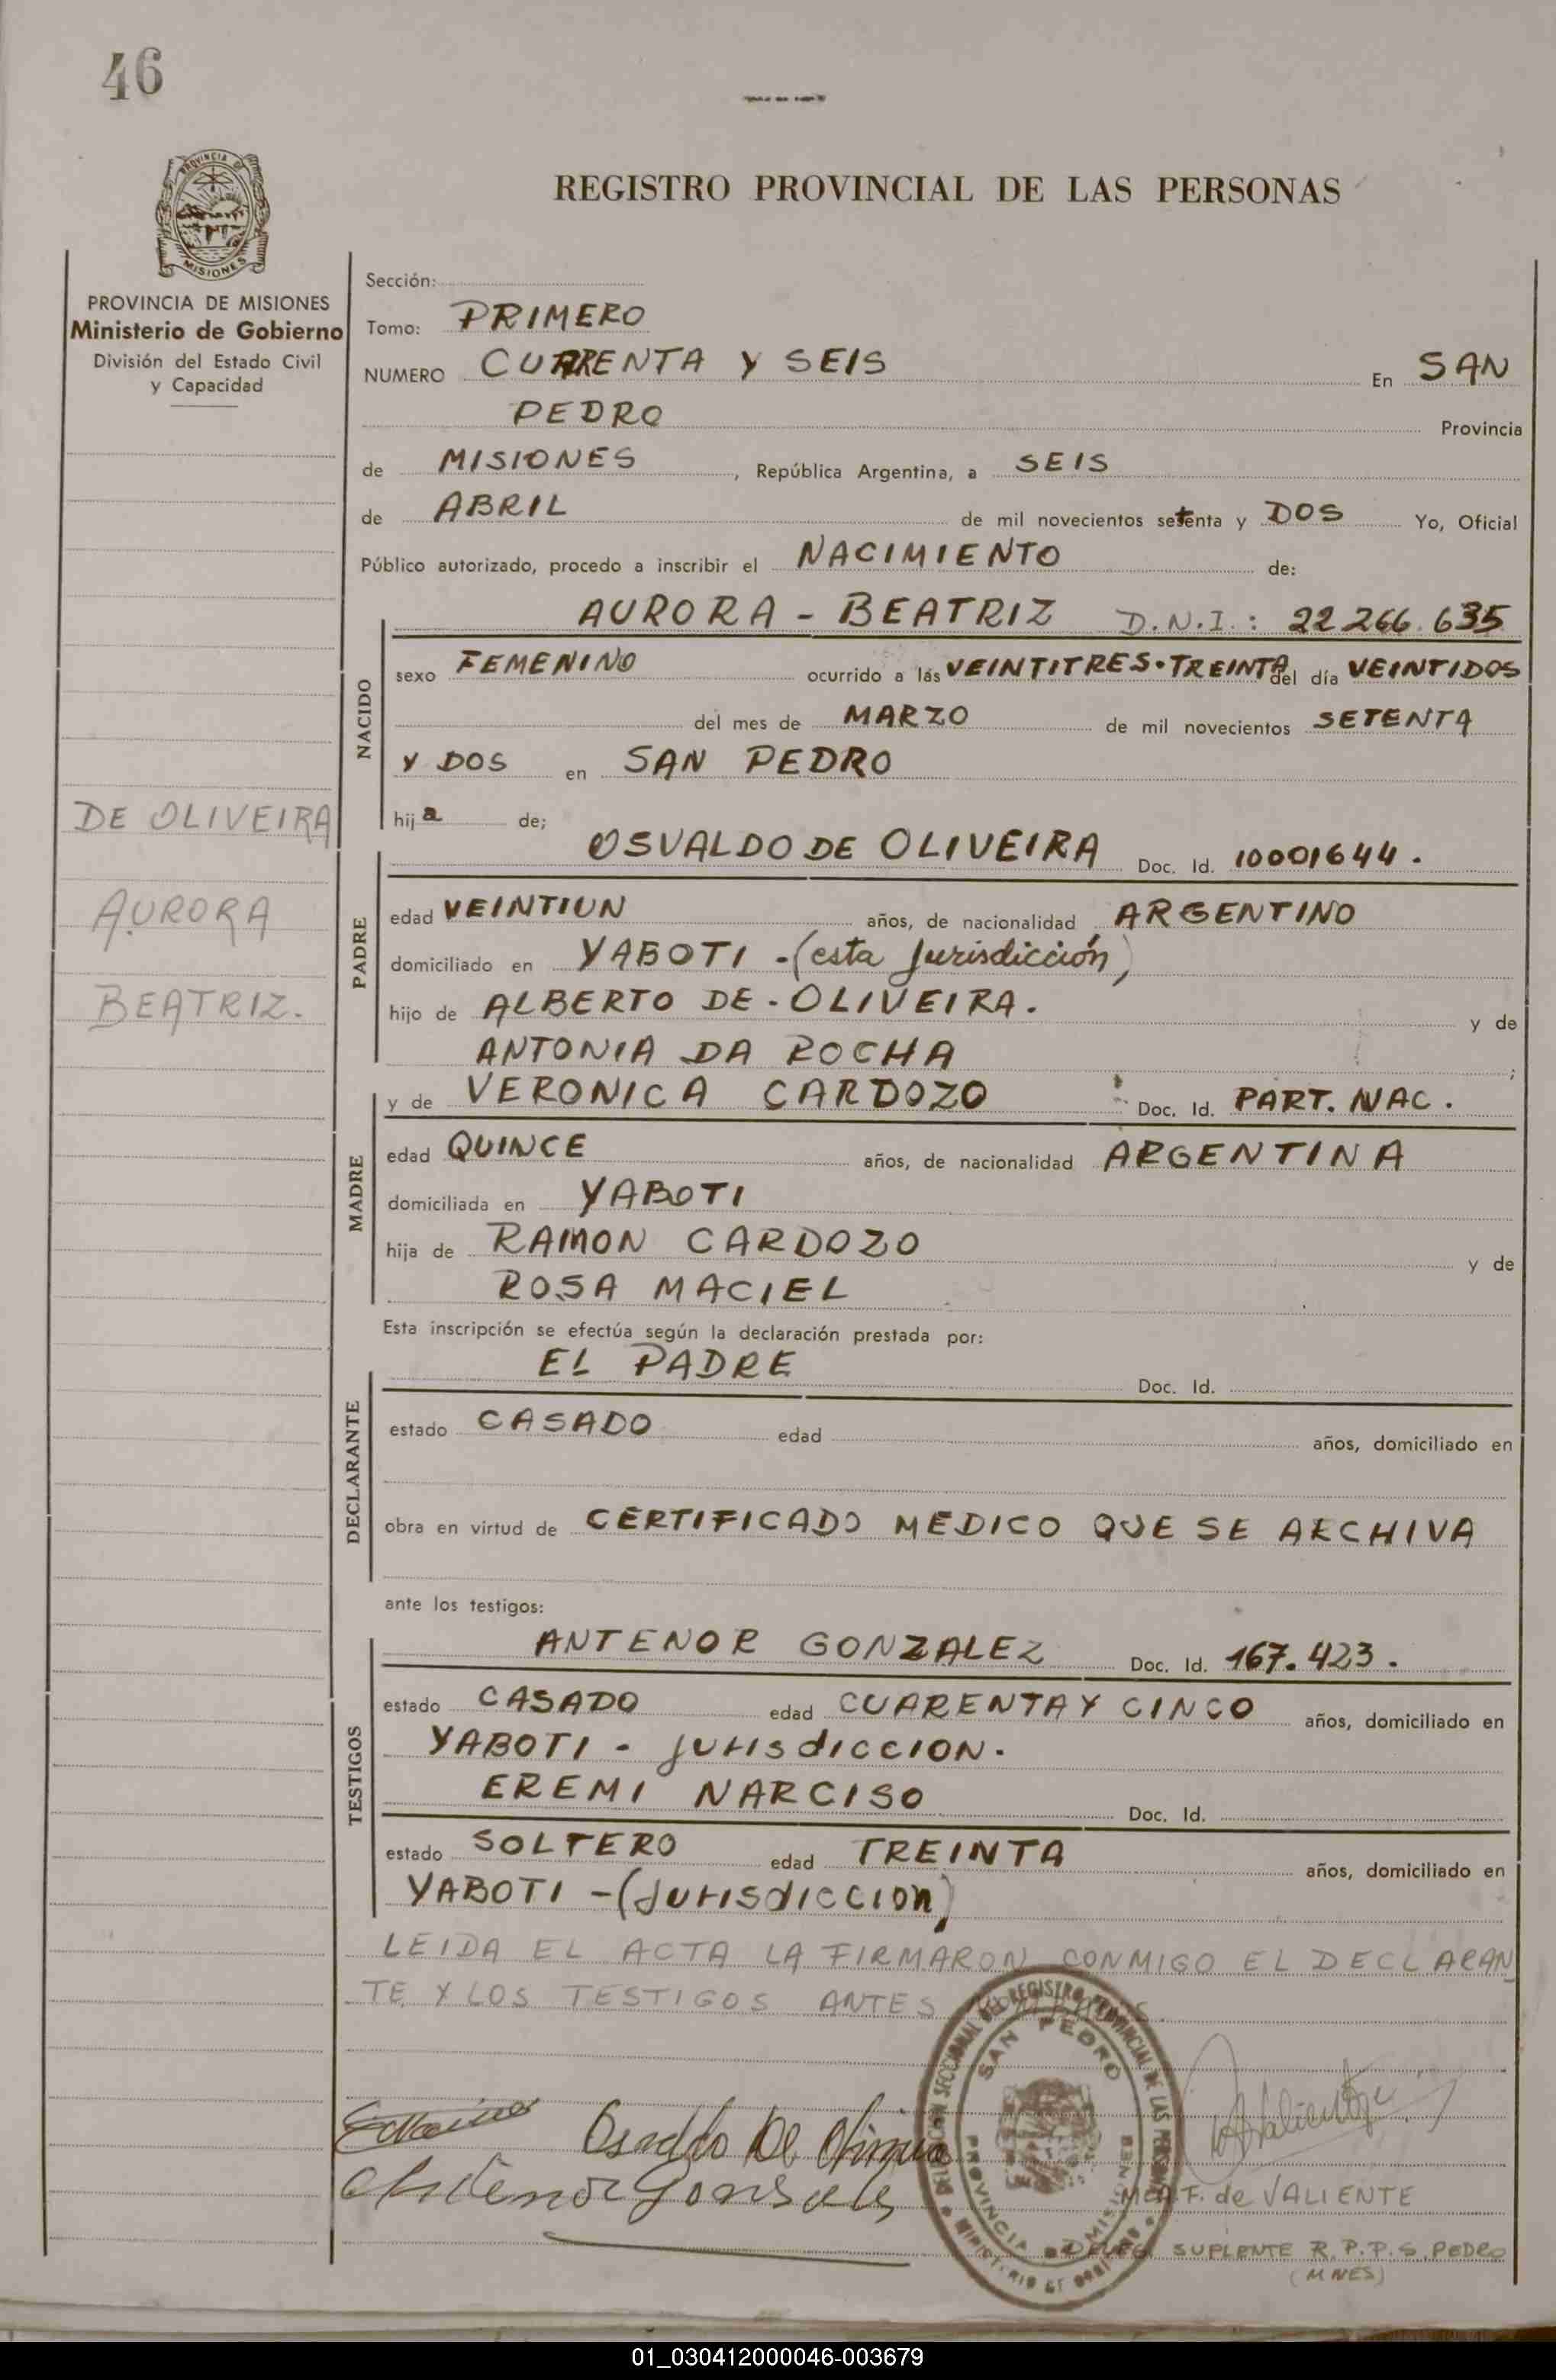 46
REGISTRO PROVINCIAL DE LAS PERSONAS
PROVINCIA DE
MISIONES
PROVINCIA DE MISIONES
Ministerio de Gobierno
División del Estado Civil
y Capacidad
DE OLIVEIRA
AURORA
BEATRIZ.
Sección:
Tomo: PRIMERO
NUMERO CUARENTA Y SEIS En SAN
PEDRO Provincia
de MISIONES, República Argentina, a SEIS
de ABRIL de mil novecientos setenta y DOS Yo, Oficial
Público autorizado, procedo a inscribir el NACIMIENTO de:
AURORA - BEATRIZ D.N.I.: 22.266.635
NACIDO
sexo FEMENINO ocurrido a las VEINTITRES.TREINTA del día VEINTIDOS
del mes de MARZO de mil novecientos SETENTA
Y DOS en SAN PEDRO
hija de;
OSVALDO DE OLIVEIRA Doc. Id. 10001644.
PADRE
edad VEINTIUN años, de nacionalidad ARGENTINO
domiciliado en YABOTI -(esta Jurisdicción)
hijo de ALBERTO DE-OLIVEIRA. y de
ANTONIA DA ROCHA ;
y de VERONICA CARDOZO Doc. Id. PART. NAC.
MADRE
edad QUINCE años, de nacionalidad ARGENTINA
domiciliada en YABOTI
hija de RAMON CARDOZO y de
ROSA MACIEL
Esta inscripción se efectúa según la declaración prestada por:
EL PADRE Doc. Id.
DECLARANTE
estado CASADO edad años, domiciliado en
obra en virtud de CERTIFICADO MEDICO QUE SE ARCHIVA
ante los testigos:
ANTENOR GONZALEZ Doc. Id. 167.423.
TESTIGOS
estado CASADO edad CUARENTA Y CINCO años, domiciliado en
YABOTI - jurisdiccion.
EREMI NARCISO Doc. Id.
estado SOLTERO edad TREINTA años, domiciliado en
YABOTI -(Jurisdiccion)
LEIDA EL ACTA LA FIRMARON CONMIGO EL DECLARAN
TE Y LOS TESTIGOS ANTES
DELEGACION SECCIONAL DEL REGISTRO PROVINCIAL DE LAS PERSONAS
SAN PEDRO
PROVINCIA DE MISIONES
MINISTERIO DE GOBIERNO
Osvaldo De Oliveira
Antenor Gonsales
A.F. de VALIENTE
DELEG. SUPLENTE R.P.P.S. PEDRO
(MNES)
01_030412000046-003679